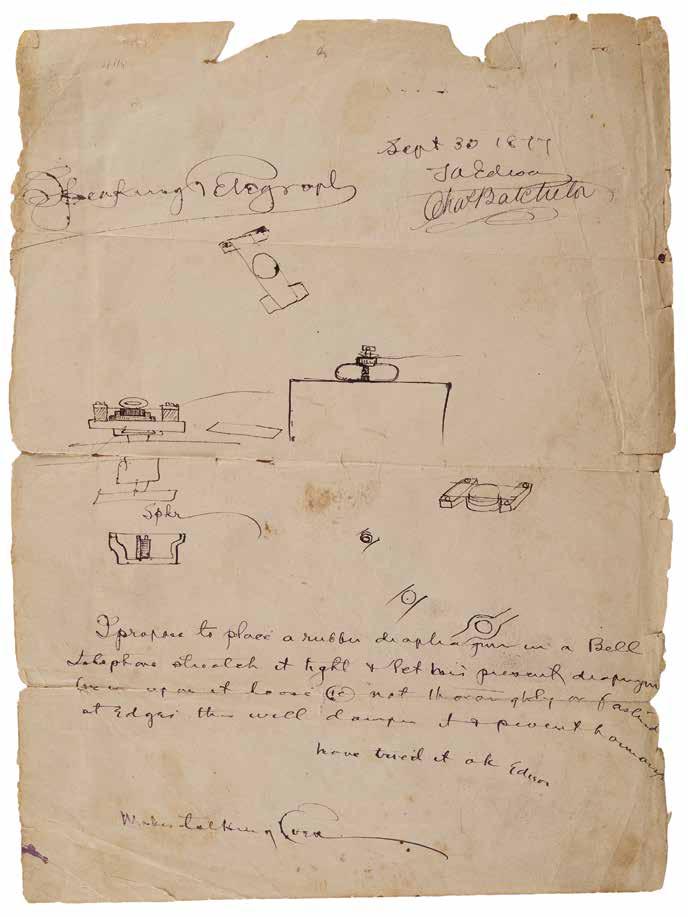 Sept 30 1877
T A Edison
Chas Batchelor
Speaking Telegraph
Spkr
I propose to place a rubber diaphragm in a Bell
telephone stretch it tight & let his present diaphragm
upon it loose (ie) not thoroughly fastend
at Edges this will dampen it & prevent harmonics
have tried it ok Edison
Makes talking